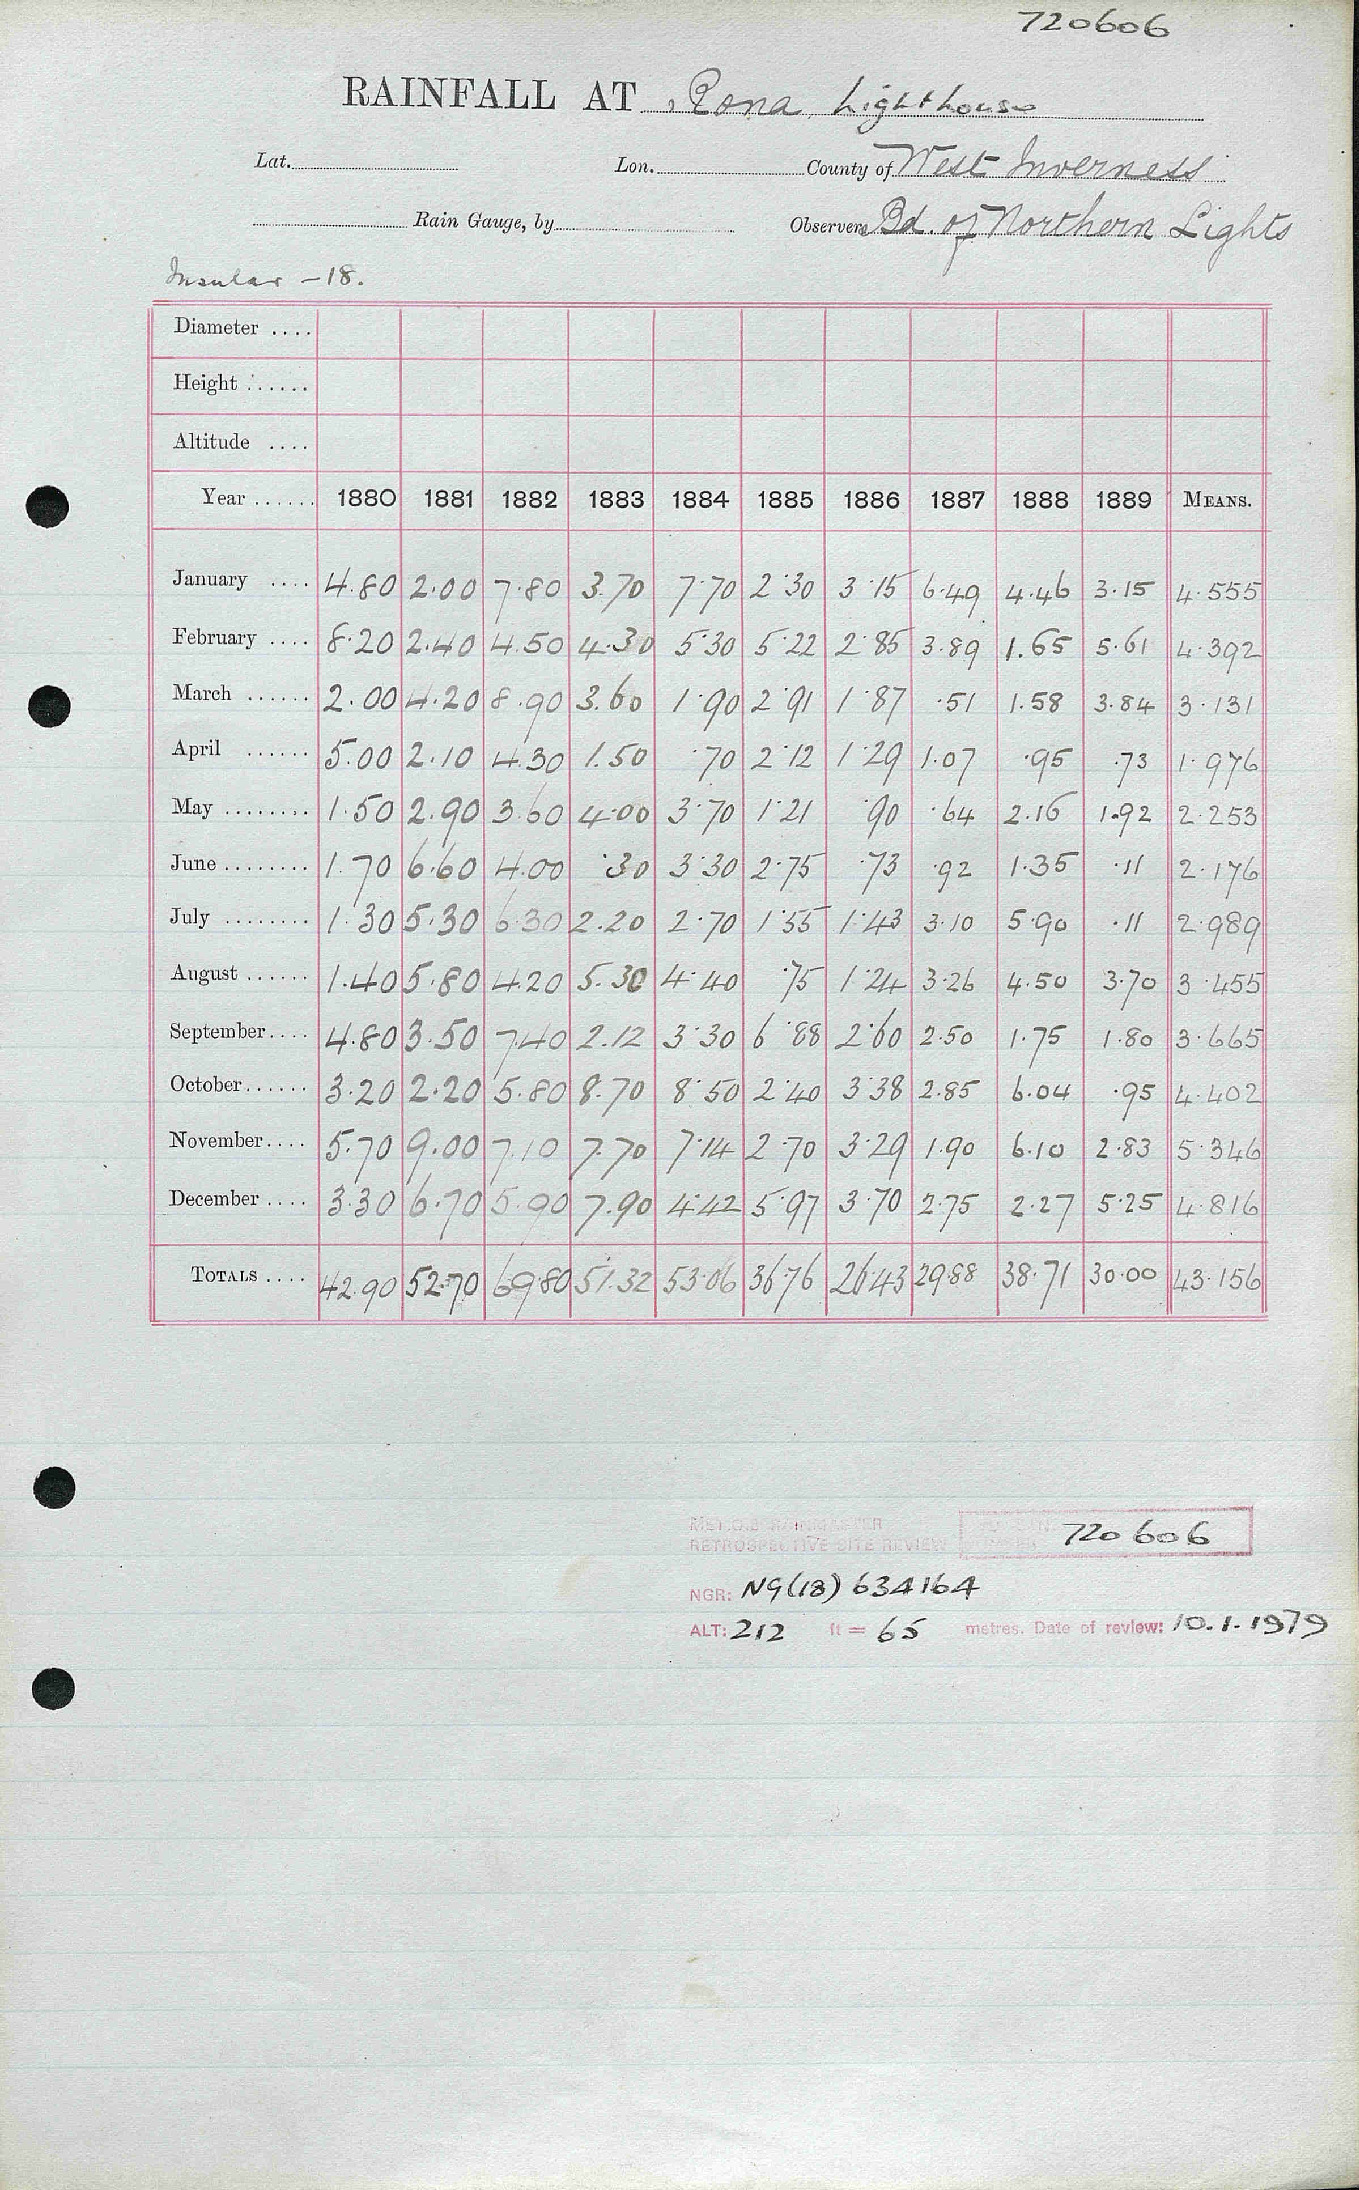 720606
RAINFALL AT Rona Lighthouse
Lat. Lon. County of West Inverness
Rain Gauge, by Observers Bd. of Northern Lights
Insular - 18.
Diameter ....
Height ......
Altitude ....
Year ...... 1880 1881 1882 1883 1884 1885 1886 1887 1888 1889 MEANS.
January .... 4.80 2.00 7.80 3.70 7.70 2.30 3.15 6.49 4.46 3.15 4.555
February .... 8.20 2.40 4.50 4.30 5.30 5.22 2.85 3.89 1.65 5.61 4.392
March ...... 2.00 4.20 8.90 3.60 1.90 2.91 1.87 .51 1.58 3.84 3.131
April ...... 5.00 2.10 4.30 1.50 .70 2.12 1.29 1.07 .95 .73 1.976
May ........ 1.50 2.90 3.60 4.00 3.70 1.21 .90 .64 2.16 1.92 2.253
June ........ 1.70 6.60 4.00 .30 3.30 2.75 .73 .92 1.35 .11 2.176
July ........ 1.30 5.30 6.30 2.20 2.70 1.55 1.43 3.10 5.90 .11 2.989
August ...... 1.40 5.80 4.20 5.30 4.40 .75 1.24 3.26 4.50 3.70 3.455
September .... 4.80 3.50 7.40 2.12 3.30 6.88 2.60 2.50 1.75 1.80 3.665
October ...... 3.20 2.20 5.80 8.70 8.50 2.40 3.38 2.85 6.04 .95 4.402
November .... 5.70 9.00 7.10 7.70 7.14 2.70 3.29 1.90 6.10 2.83 5.346
December .... 3.30 6.70 5.90 7.90 4.42 5.97 3.70 2.75 2.27 5.25 4.816
TOTALS .... 42.90 52.70 69.80 51.32 53.06 36.76 26.43 29.88 38.71 30.00 43.156
MET.O.8 RAINMASTER
RETROSPECTIVE SITE REVIEW 720606
NGR: NG(18) 634164
ALT: 212 ft = 65 metres. Date of review: 10.1.1979